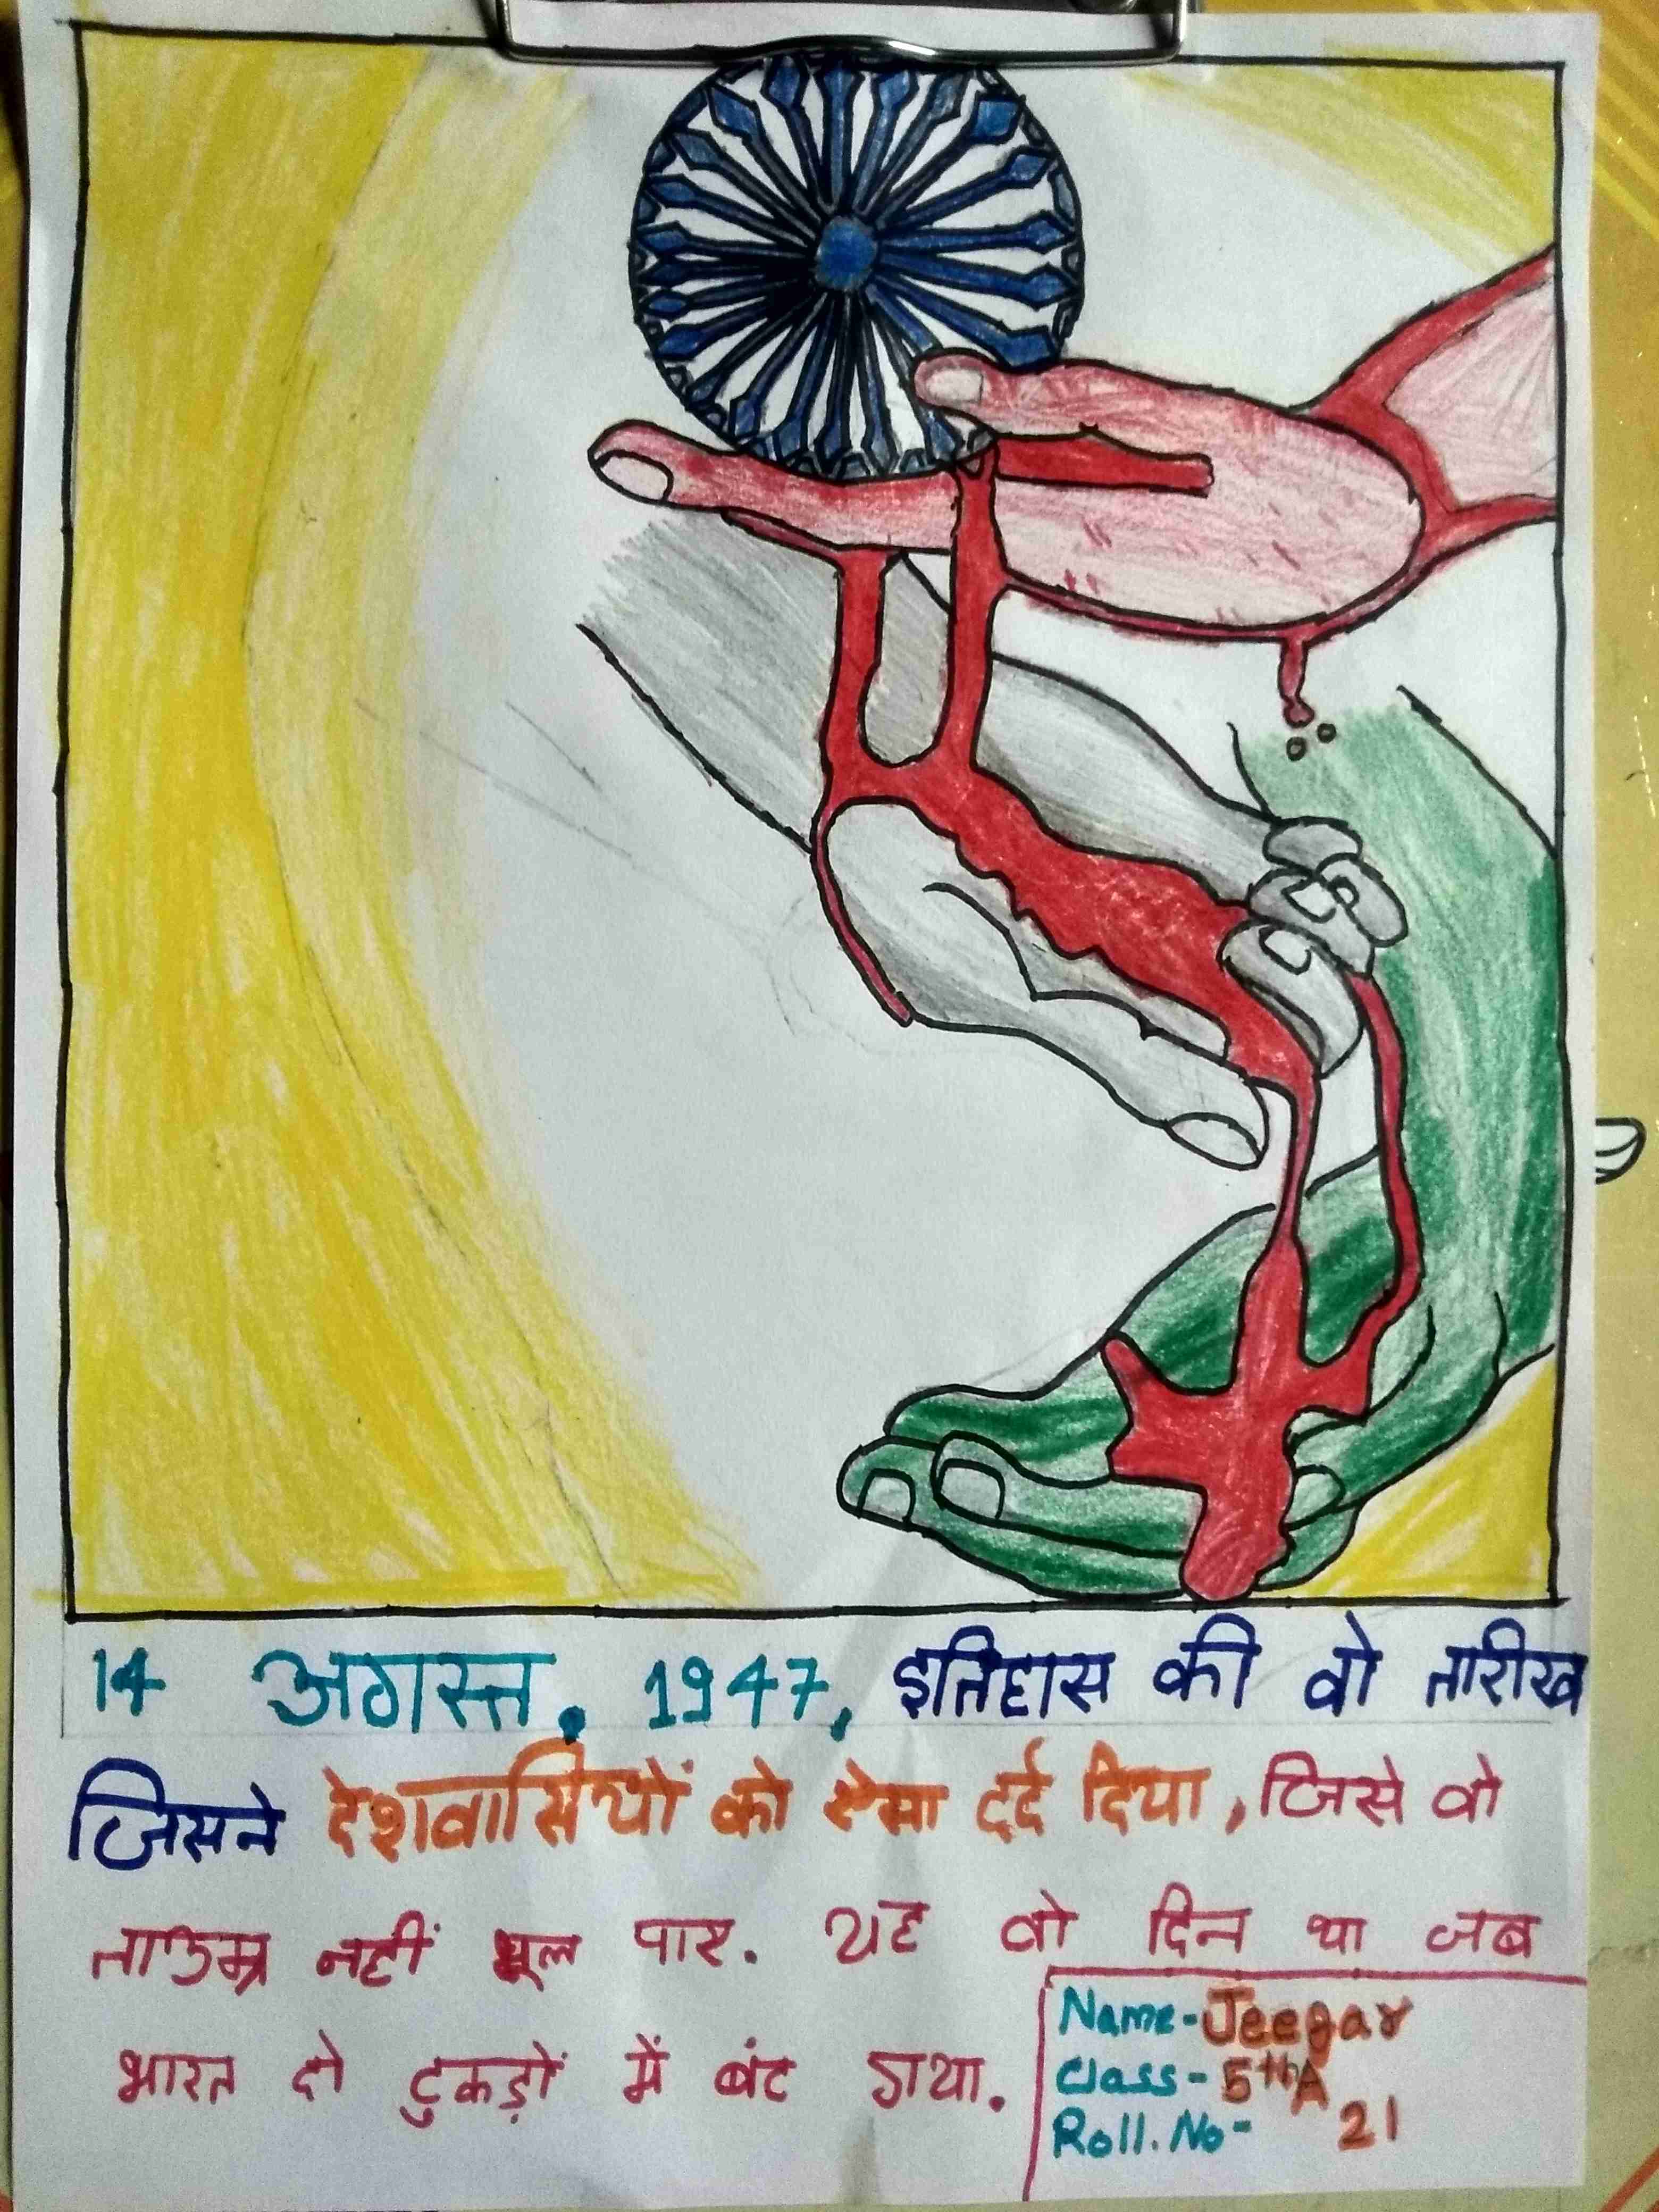 14 अगस्त. 1947, इतिहास की वो तारीख
जिसने देशवासियों को ऐसा दर्द दिया, जिसे वो
ताउम्र नहीं भूल पाए. यह वो दिन था जब
भारत दो टुकड़ों में बंट गया.
Name-Jeegar
Class-5thA
Roll.No- 21